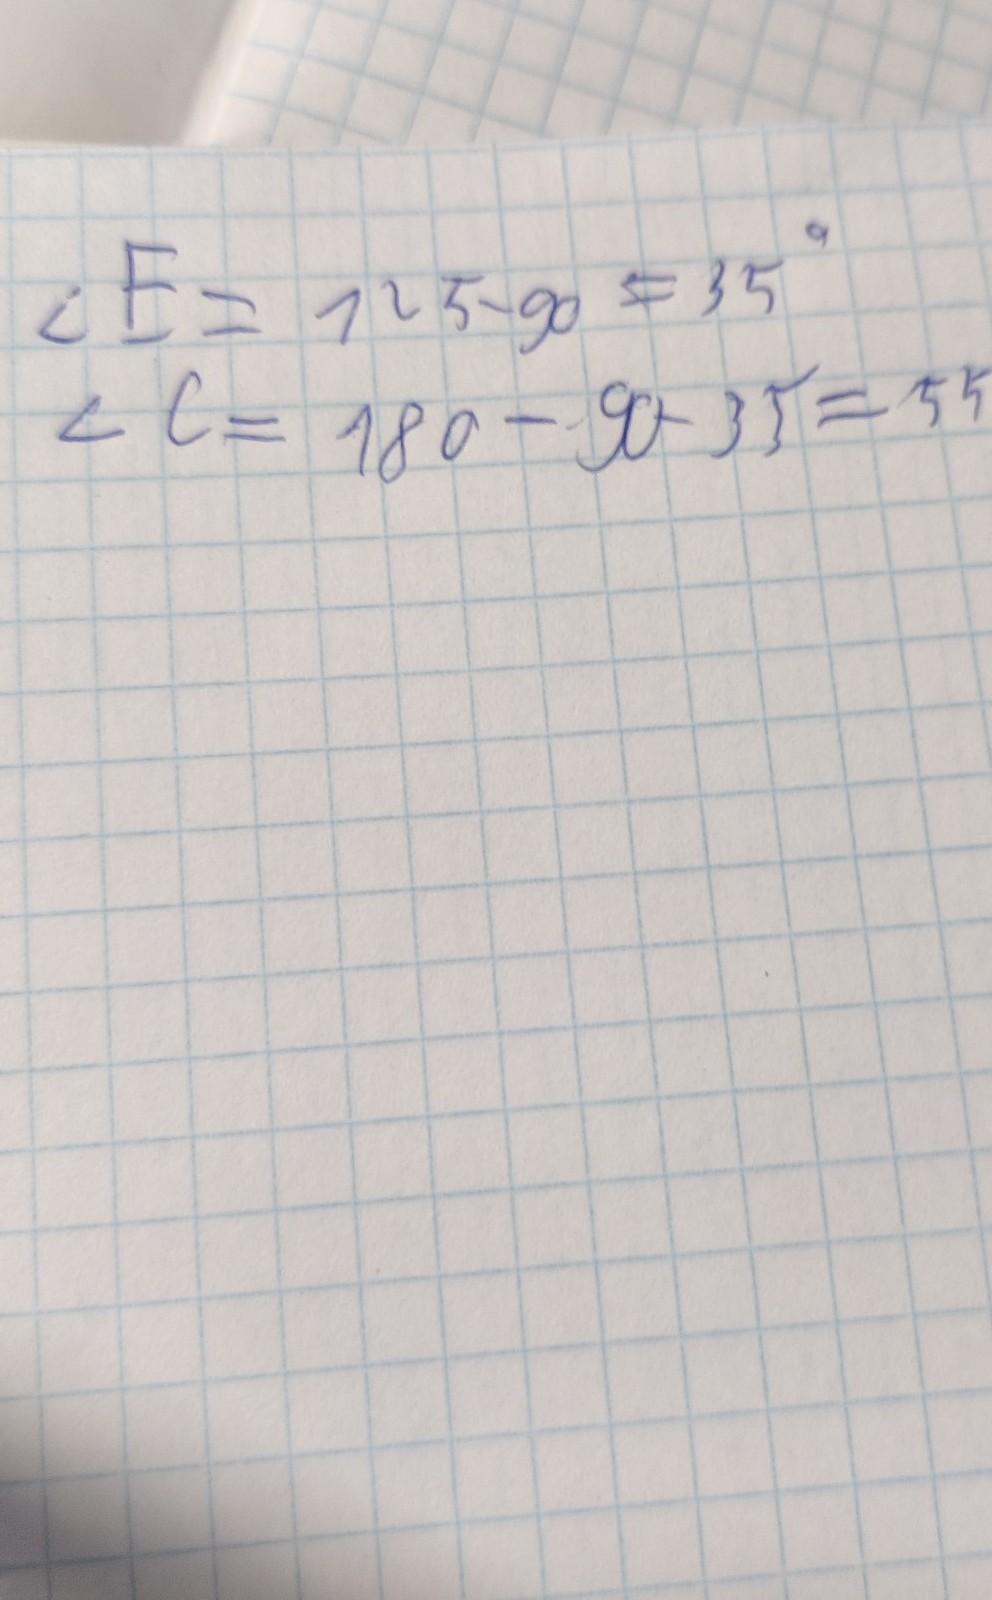 < E = 125-90 = 35°
< C = 180 - 90 - 35 = 55